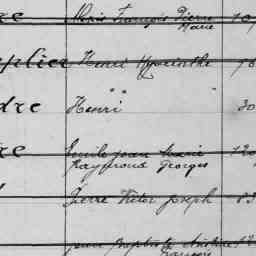 re Alexis François Pierre 10
Marie
plier Henri Hyacinthe
" " "
dre Henri 30
re Emile Jean Marie 120
Raymond Georges
Pierre Victor Joseph 83
Jean Baptiste
François